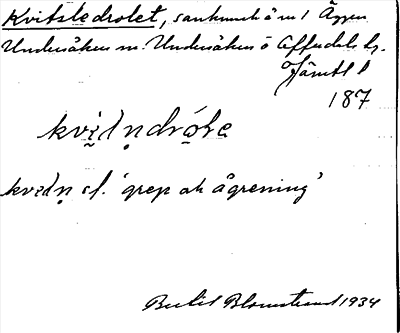 Kvitsledrolet, sankmark ö m l Äggen
Undersåkers m. Undersåkers o Offerdals tg.
Jämtl l
187
kvi̬ḷṇdró̬ḷe
kviḷṇ sf. 'gren ok ågrening'
Bertil Blomstrand 1934